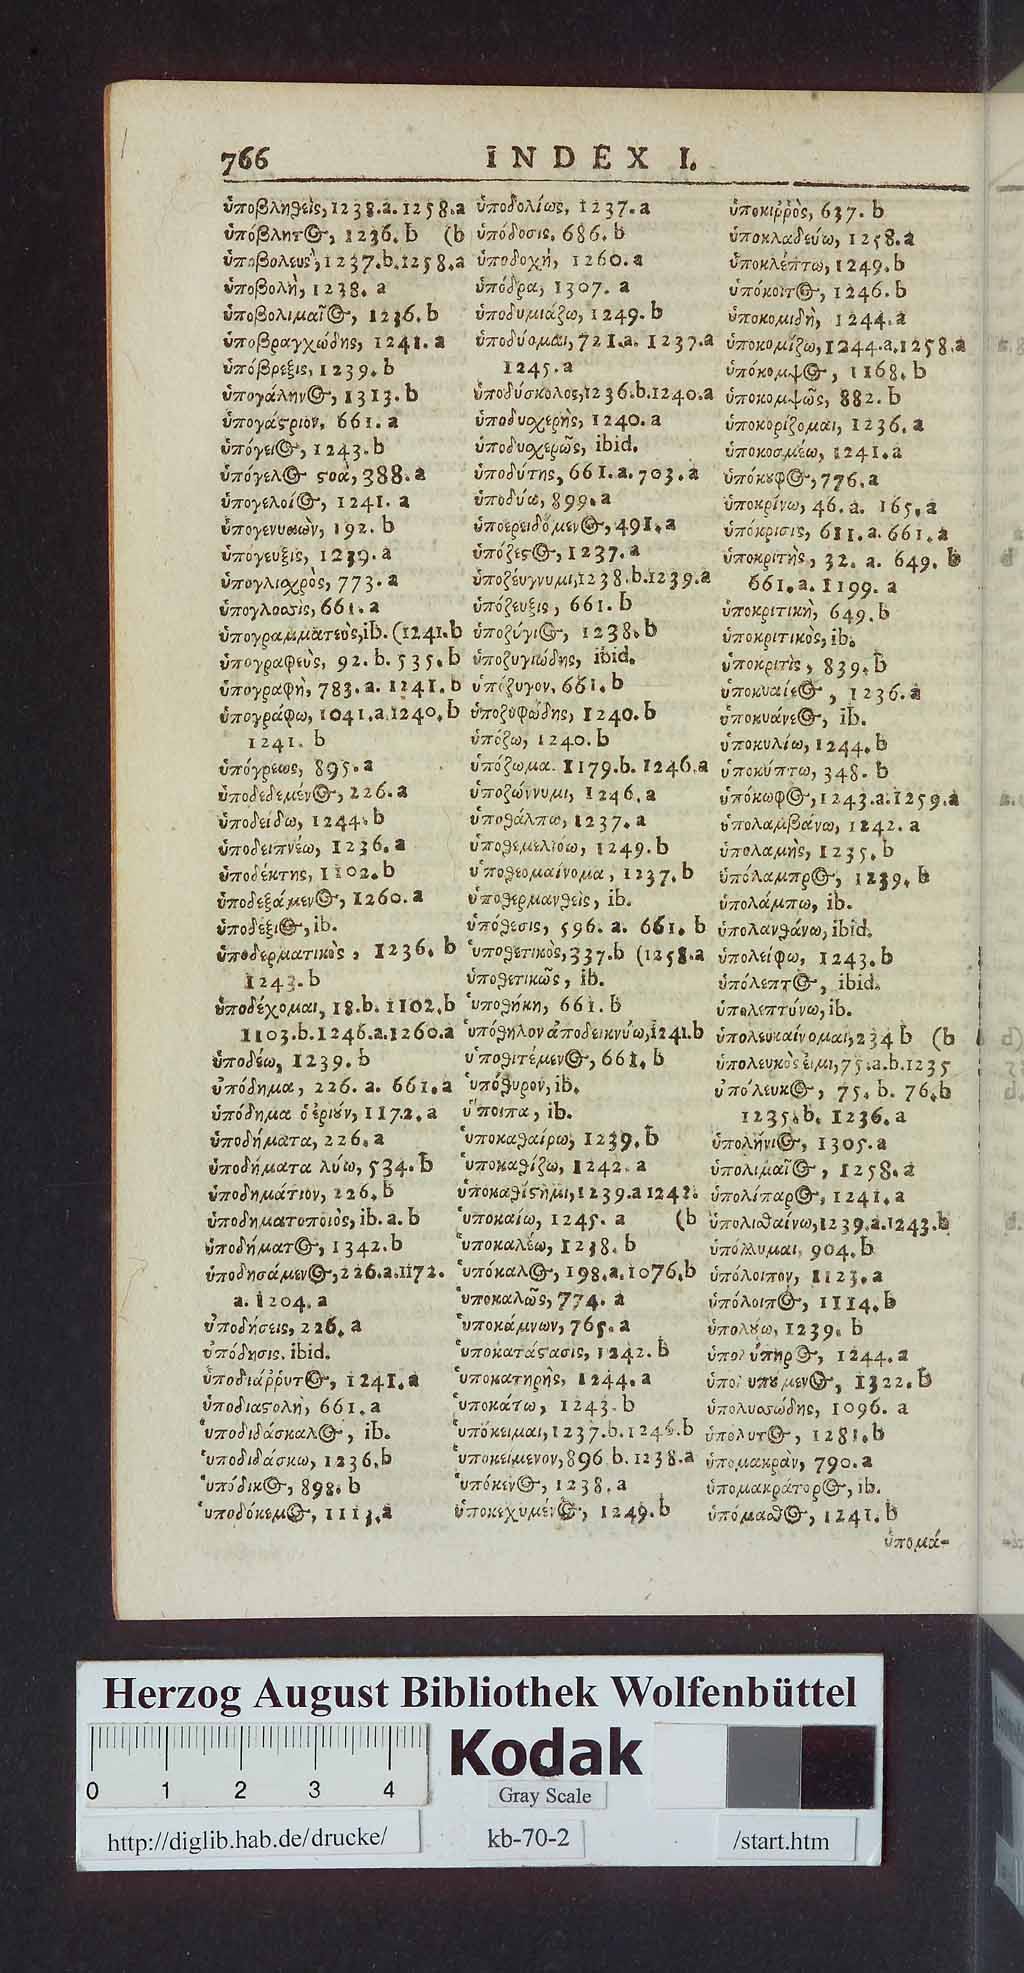 766 INDEX I.
ὑποβληθεὶς, 1238.a. 1258.a
ὑπόβλητος, 1236. b (b
ὑποβολευς, 1237.b. 1258.a
ὑποβολὴ, 1238. a
ὑποβολιμαῖος, 1236. b
ὑποβραγχώδης, 1241. a
ὑπόβρεξις, 1239. b
ὑπογάληνος, 1313. b
ὑπογάστριον, 661. a
ὑπόγειος, 1243. b
ὑπόγελος στοὰ, 388. a
ὑπογελοίος, 1241. a
ὑπογενυάων, 192. b
ὑπόγευξις, 1239. a
ὑπογλισχρὸς, 773. a
ὑπογλοασὶς, 661. a
ὑπογραμματεὺς, ib. (1241. b
ὑπογραφεὺς, 92. b. 535. b
ὑπογραφὴ, 783. a. 1241. b
ὑπογράφω, 1041. a. 1240. b
1241. b
ὑπόγρεως, 895. a
ὑποδεδεμένος, 226. a
ὑποδείδω, 1244. b
ὑποδειπνέω, 1236. a
ὑποδέκτης, 1102. b
ὑποδεξάμενος, 1260. a
ὑποδέξιος, ib.
ὑποδερματικὸς, 1236. b
1243. b
ὑποδέχομαι, 18. b. 1102. b
1103. b. 1246. a. 1260. a
ὑποδέω, 1239. b
ὑπόδημα, 226. a. 661. a
ὑπόδημα ὀέριούν, 1172. a
ὑποδήματα, 226. a
ὑποδήματα λύω, 534. b
ὑποδημάτιον, 226. b
ὑποδηματοποιὸς, ib. a. b
ὑποδήματος, 1342. b
ὑποδησάμενος, 226. a. 1172.
a. 1204. a
ὑποδήσεις, 226. a
ὑπόδησις, ibid.
ὑποδιάῤῥυτος, 1241. a
ὑποδιαστολὴ, 661. a
ὑποδιδάσκαλος, ib.
ὑποδιδάσκω, 1236. b
ὑπόδικος, 898. b
ὑποδόκεμος, 1113. a
ὑποδολίως, 1237. a
ὑπόδοσις, 686. b
ὑποδοχὴ, 1260. a
ὑπόδρα, 1307. a
ὑποδυμιάζω, 1249. b
ὑποδύομαι, 721. a. 1237. a
1245. a
ὑποδύσκολος, 1236. b. 1240. a
ὑποδυσχερὴς, 1240. a
ὑποδυσχερῶς, ibid.
ὑποδύτης, 661. a. 703. a
ὑποδύω, 899. a
ὑποερειδόμενος, 491. a
ὑπόζεστος, 1237. a
ὑποζεύγνυμι, 1238. b. 1239. a
ὑπόζευξις, 661. b
ὑποζύγιος, 1238. b
ὑποζυγιώδης, ibid.
ὑπόζυγον, 661. b
ὑποζυφώδης, 1240. b
ὑπόζω, 1240. b
ὑπόζωμα. 1179. b. 1246. a
ὑποζώννυμι, 1246. a
ὑποθάλπω, 1237. a
ὑποθεμελιόω, 1249. b
ὑποθεομαίνομα, 1237. b
ὑποθερμανθεὶς, ib.
ὑπόθεσις, 596. a. 661. b
ὑποθετικὸς, 337. b (1258. a
ὑποθετικῶς, ib.
ὑποθήκη, 661. b
ὑπόθηλον ἀποδεικνύω, 1241. b
ὑποθιτέμενος, 661. b
ὑπόθυρον, ib.
ὕποιπα, ib.
ὑποκαθαίρω, 1239. b
ὑποκαθίζω, 1242. a
ὑποκαθίστημι, 1239. a 1242.
ὑποκαίω, 1245. a (b
ὑποκαλέω, 1238. b
ὑπόκαλος, 198. a. 1076. b
ὑποκαλῶς, 774. a
ὑποκάμνων, 765. a
ὑποκατάστασις, 1242. b
ὑποκατηρὴς, 1244. a
ὑποκάτω, 1243. b
ὑπόκειμαι, 1237. b. 1246. b
ὑποκείμενον, 896. b. 1238. a
ὑπόκενος, 1238. a
ὑποκεχυμένος, 1249. b
ὑποκιῤῥὸς, 637. b
ὑποκλαδεύω, 1258. a
ὑποκλέπτω, 1249. b
ὑπόκοιτος, 1246. b
ὑποκομιδὴ, 1244. a
ὑποκομίζω, 1244. a. 1258. a
ὑπόκομψος, 1168. b
ὑποκομψῶς, 882. b
ὑποκορίζομαι, 1236. a
ὑποκοσμέω, 1241. a
ὑπόκουφος, 776. a
ὑποκρίνω, 46. a. 165. a
ὑπόκρισις, 611. a. 661. a
ὑποκριτὴς, 32. a. 649. b
661. a. 1199. a
ὑποκριτικὴ, 649. b
ὑποκριτικὸς, ib.
ὑποκριτὶς, 839. b
ὑποκυαίεος, 1236. a
ὑποκυάνεος, ib.
ὑποκυλίω, 1244. b
ὑποκύπτω, 348. b
ὑπόκωφος, 1243. a. 1259. a
ὑπολαμβάνω, 1242. a
ὑπολαμὴς, 1235. b
ὑπόλαμπρος, 1239. b
ὑπολάμπω, ib.
ὑπολανθάνω, ibid.
ὑπολείφω, 1243. b
ὑπόλεπτος, ibid.
ὑπολεπτύνω, ib.
ὑπολευκαίνομαι, 234 b (b
ὑπολευκὸς ἐιμι, 75. a. b. 1235
ὑπόλευκος, 75. b. 76. b
1235. b. 1236. a
ὑπολήνιος, 1305. a
ὑπολιμαῖος, 1258. a
ὑπολίπαρος, 1241. a
ὑπολισθαίνω, 1239. a. 1243. b
ὑπόλλυμαι, 904. b
ὑπόλοιπον, 1123. a
ὑπόλοιπος, 1114. b
ὑπολούω, 1239. b
ὑπολύπηρος, 1244. a
ὑπολυπούμενος, 1322. b
ὑπολυσσώδης, 1096. a
ὑπόλυτος, 1281. b
ὑπομακρὰν, 790. a
ὑπομακράτορος, ib.
ὑπόμασθος, 1241. b
ὑπομά-
Herzog August Bibliothek Wolfenbüttel
0 1 2 3 4
Kodak
Gray Scale
http://diglib.hab.de/drucke/ kb-70-2 /start.htm